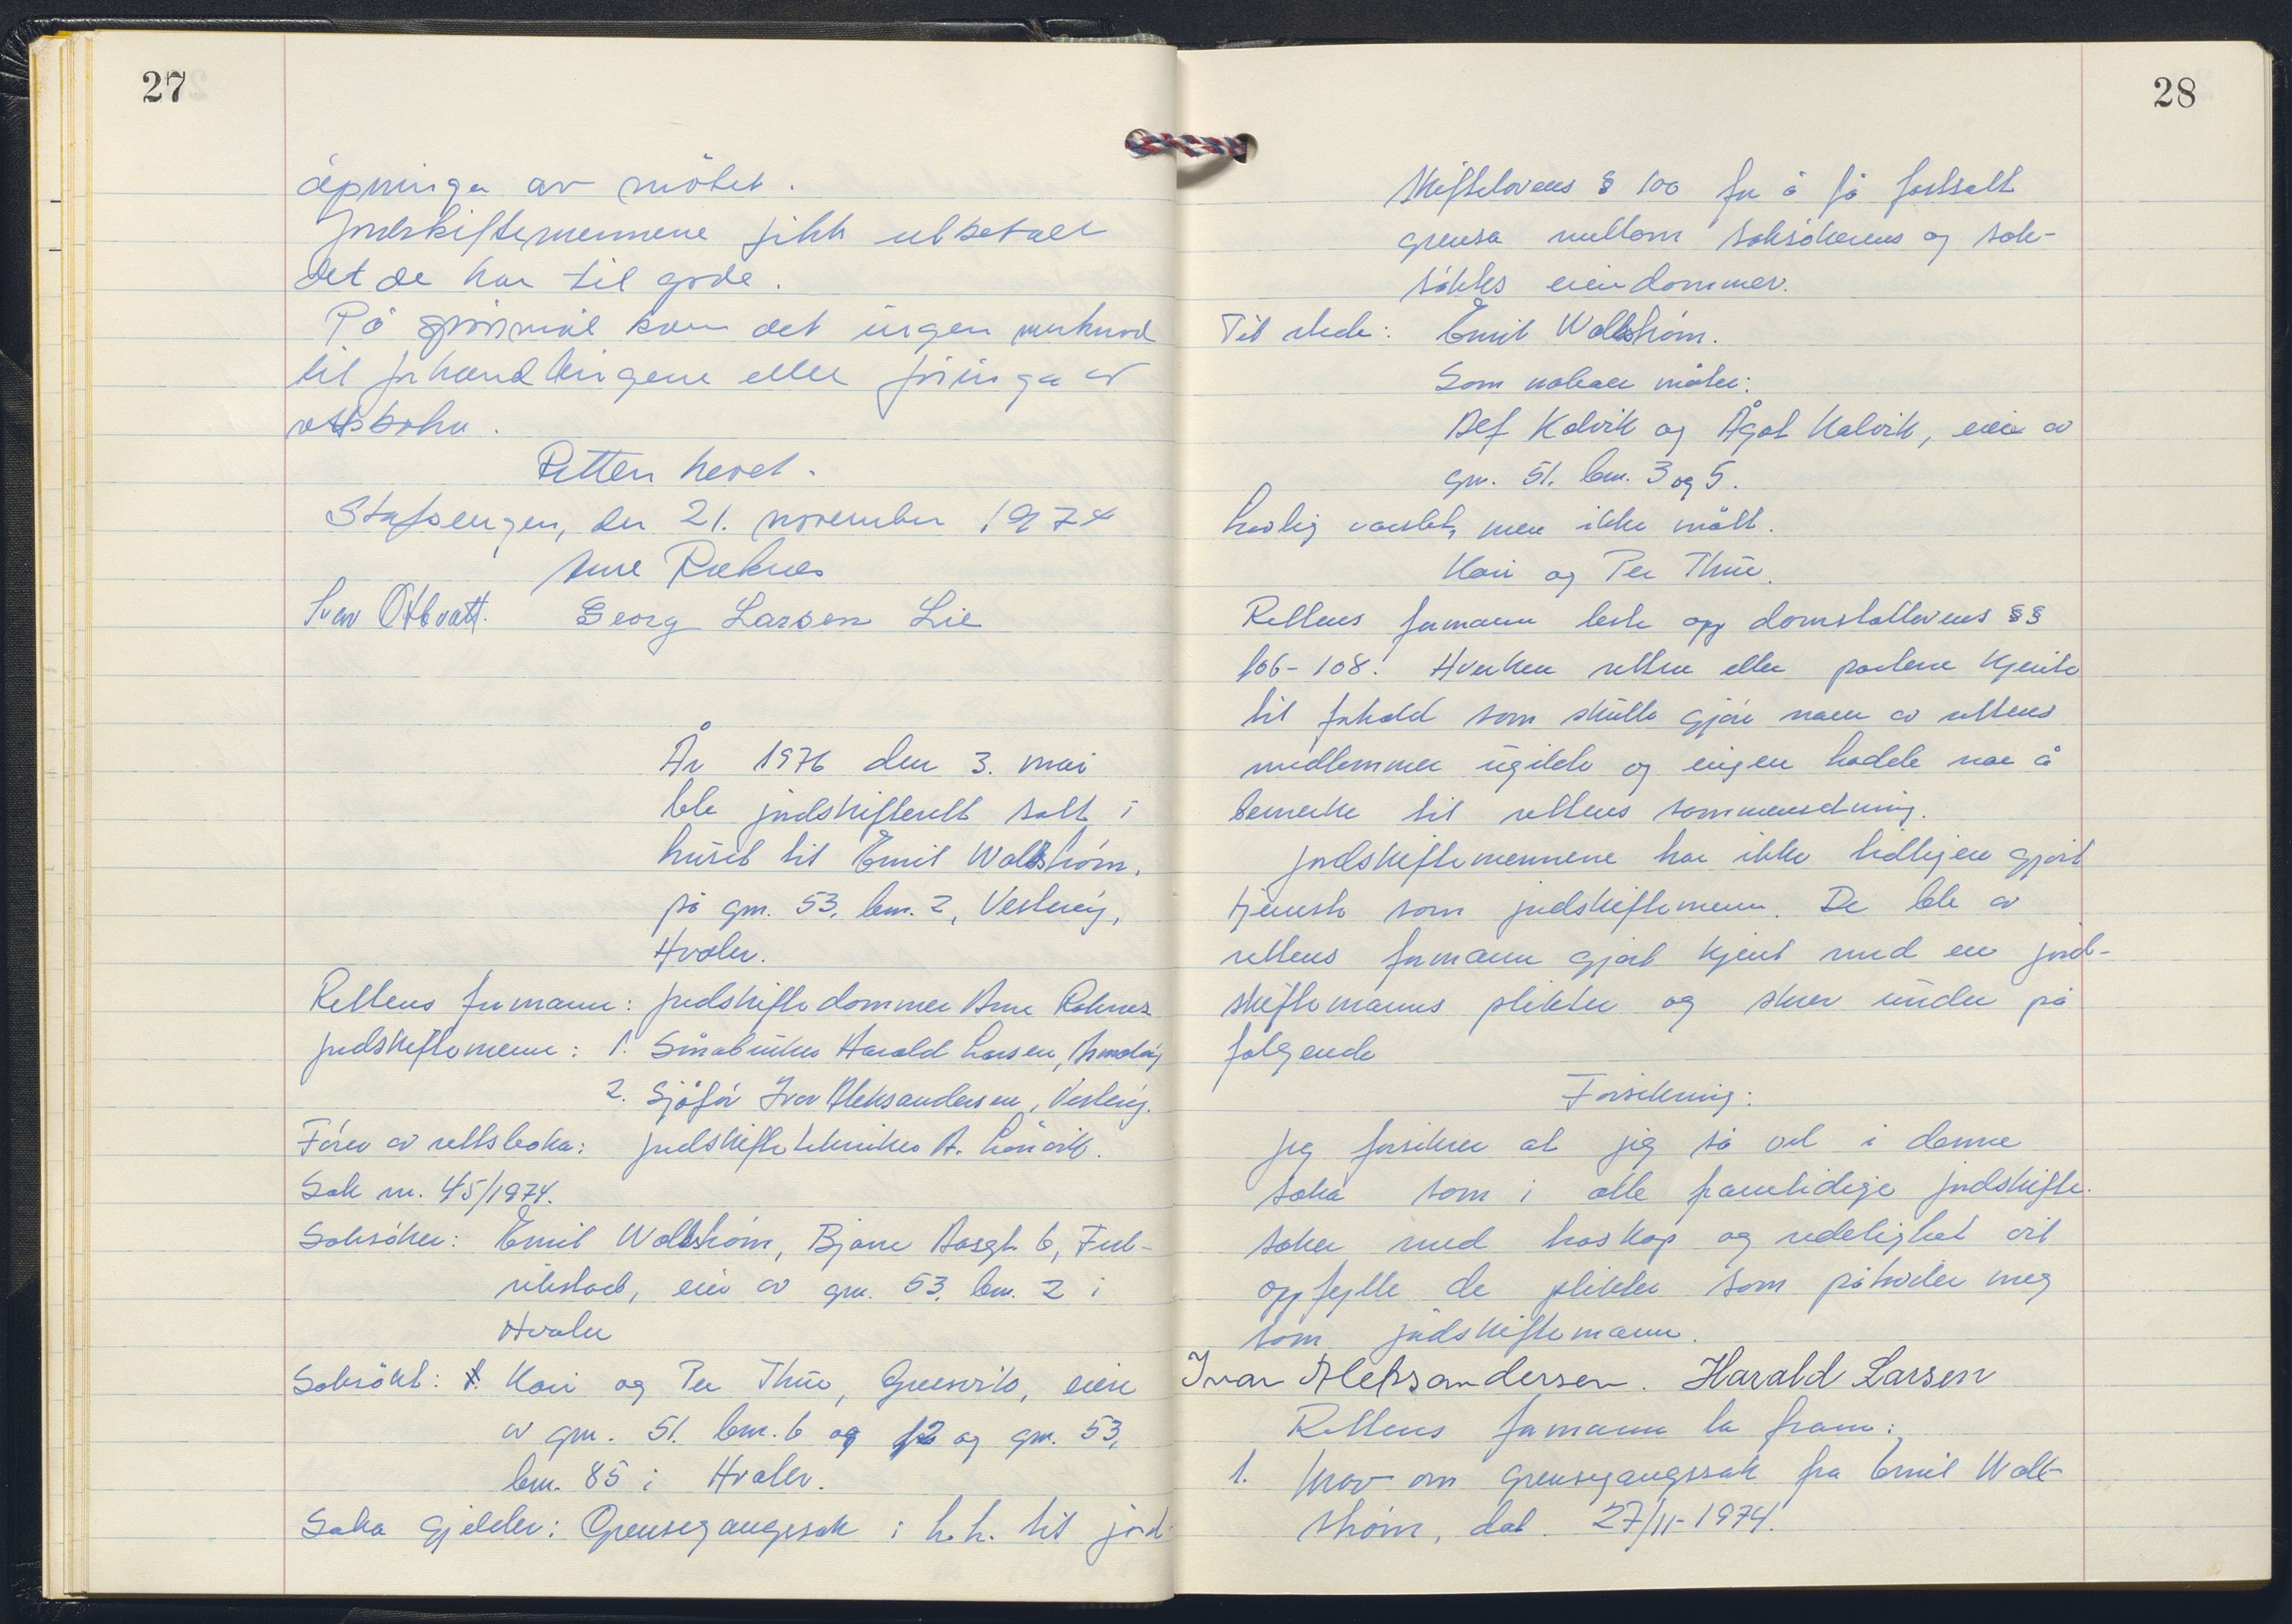 27
åpninga av møtet.
Jordskiftemennene fikk utbetalt
det de har til gode.
På spørsmål kom det ingen merknad
til forhandlingene eller føringa av
rettsboka.
Retten hevet.
Stafsengen, den 21. november 1974
Arne Reknes
Ivar Georg Larsen Lie
År 1976 den 3. mai
ble jordskifterett satt i
huset til Emil Wallstrøm,
på gnr. 53, bnr. 2, Vesterøy,
Hvaler.
Rettens formann: Jordskiftedommer Arne Reknes
Jordskiftemenn: 1. Småbruker Harald Larsen, Asmaløy
2. Sjåfør Ivar Aleksandersen, Vesterøy.
Fører av rettsboka: Jordskiftetekniker A. Lønvik.
Sak nr. 45/1974.
Saksøker: Emil Wallstrøm, Bjarne Aasgt. 6, Fred-
rikstad, eier av gnr. 53, bnr. 2 i
Hvaler
Saksøkt: 1. Kari og Per Thue, Greåsvik, eiere
av gnr. 51. bnr. 6 og 12 og gnr. 53,
bnr. 85 i Hvaler.
Saka gjelder: Grensegangssak i h.h. til jord-
28
skiftelovens § 100 for å få fastsatt
grensa mellom saksøkerens og sak-
søktes eiendommer.
Til stede: Emil Wallstrøm.
Som naboer møter:
Alf Kalvik og Ågot Kalvik, eier av
gnr. 51. bnr. 3 og 5.
Lovlig varslet, men ikke møtt.
Kari og Per Thue.
Rettens formann leste opp domstollovens §§
106-108. Hverken retten eller partene kjente
til forhold som skulle gjøre noen av rettens
medlemmer ugilde og ingen hadde noe å
bemerke til rettens sammensetning.
Jordskiftemennene har ikke tidligere gjort
tjeneste som jordskiftemenn. De ble av
rettens formann gjort kjent med en jord-
skiftemanns plikter og skrev under på
følgende
Forsikring:
Jeg forsikrer at jeg så vel i denne
saka som i alle framtidige jordskifte-
saker med troskap og redelighet vil
oppfylle de plikter som påhviler meg
som jordskiftemann.
Ivar Aleksandersen. Harald Larsen
Rettens formann la fram:
1. Krav om grensegangssak fra Emil Wall-
strøm, dat. 27/11-1974.